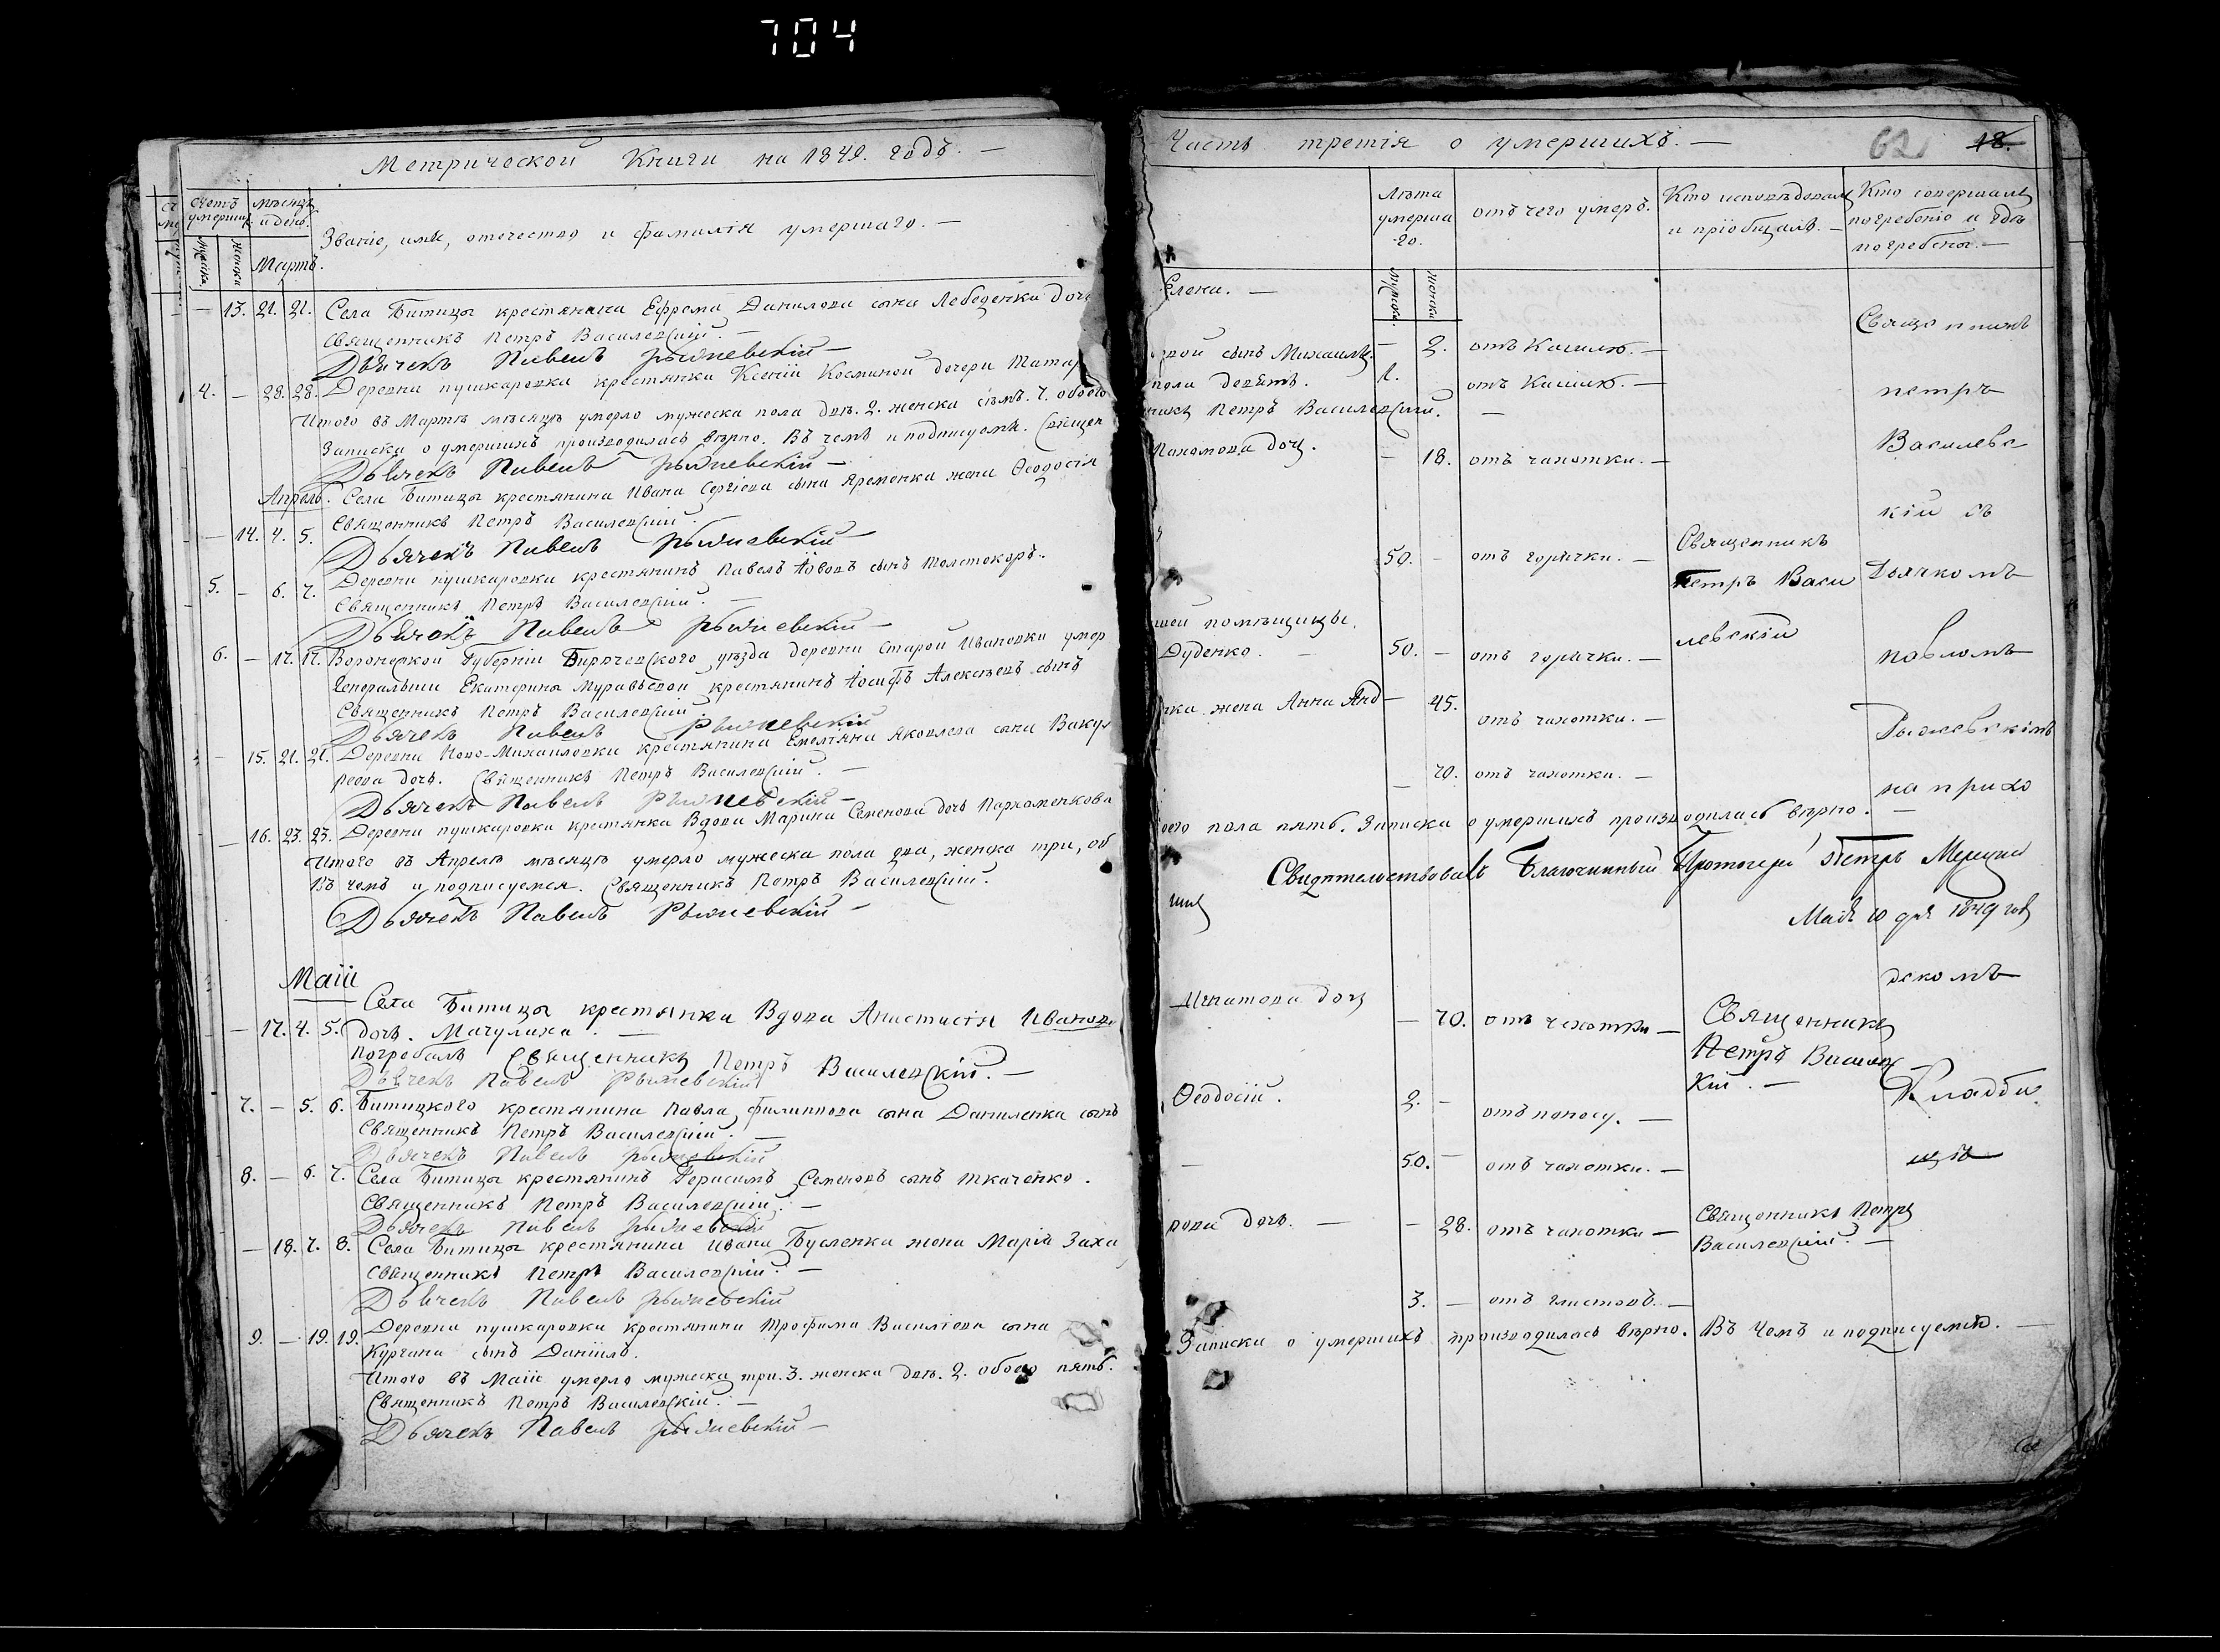 704
Метрической Книги на 1849. годъ. —
счетъ умершихъ
мѣсяцъ и день.
Мужска
Женска
Мартъ.
Званіе, имя, отечество и фамилія умершаго. —
— 13. 21. 21. Села Битицы крестянина Ефрема Данилова сына Лебеденка дочь
Священникъ Петръ Василевскій. —
Дьячекъ Павелъ Рыжевскій —
4. — 28. 28. Деревни пушкаровки крестянки Ксеніи Косминой дочери Татар
Итого въ Мартѣ мѣсяцѣ умерло мужеска пола два. 2. женска семь. 7. обоего
Записка о умершихъ производилась вѣрно. Въ чемъ и подписуемя. Священ
Дьячекъ Павелъ Рыжевскій —
Апрель. Села Битицы крестянина Ивана Сергіева сына Яременка жена Ѳеодосія
— 14. 4. 5. Священникъ Петръ Василевскій.
Дьячекъ Павелъ Рыжевскій —
5. — 6. 7. Деревни пушкаровки крестянинъ Павелъ Іововъ сынъ Толстокоръ.
Священникъ Петръ Василевскій. —
Дьячекъ Павелъ Рыжевскій —
6. — 17. 17. Воронежкой Губерніи Бирючевского уѣзда деревни Старой Ивановки умер
Генеральши Екатерины Муравьевой крестянинъ Іосифъ Алексѣевъ сынъ
Священникъ Петръ Василевскій
Дьячекъ Павелъ Рыжевскій
— 15. 21. 21. Деревни Ново-Михаиловки крестянина Емелтяна Яковлева сына Вакул
реева дочь. Священникъ Петръ Василевскій. —
Дьячекъ Павелъ Рыжевскій —
— 16. 23. 23. Деревни пушкаровки крестянка Вдова Марина Семенова дочь Пархоменкова
Итого въ Апрелѣ мѣсяцѣ умерло мужеска пола два, женска три, об
Въ чемъ и подписуемся. Священникъ Петръ Василевскій.
Дьячекъ Павелъ Рыжевскій —
Маій
Села Битицы крестянка Вдова Анастасія Иванова
— 17. 4. 5. дочь. Мачулиха. —
Погребалъ Священникъ Петръ Василевскій. —
Дьячекъ Павелъ Рыжевскій
7. — 5. 6. Битицкого крестянина Павла Филиппова сына Даниленка сынъ
Священникъ Петръ Василевскій. —
Дьячекъ Павелъ Рыжевскій
8. — 6. 7. Села Битицы крестянинъ Герасимъ Семеновъ сынъ Ткаченко.
Священникъ Петръ Василевскій. —
Дьячекъ Павелъ Рыжевскій
— 18. 7. 8. Села Битицы крестянина Ивана Бусленка жена Марія Заха
Священникъ Петръ Василевскій. —
Дьячекъ Павелъ Рыжевскій
9. — 19. 19. Деревни пушкаровки крестянина Трофима Василіева сына
Курчина сынъ Даніилъ.
Итого въ Маіѣ умерло мужеска три. 3. женска два. 2. обоего пять.
Священникъ Петръ Василевскій. —
Дьячекъ Павелъ Рыжевскій —
Часть третія о умершихъ. —
62
18.
Лѣта умерша го.
отъ чего умеръ.
Кто исповѣдовалъ и пріобщалъ. —
Кто совершалъ погребеніе и гдѣ погребены. —
Мужска.
женска
Елена. —
Священникъ
овой сынъ Михаилъ. — 2. отъ Кашлю. —
пола девять. 1. отъ Кашлю. —
петръ
никъ Петръ Василевскій. —
Василевс
Пахомова дочь. — 18. отъ чахотки. —
кій съ
50. — отъ горячки. — Священникъ
Петръ Васи
Дьячкомъ
шей помѣщицы,
левскій
Дуденко. — 50. — отъ горячки. —
павломъ
чка жена Анна Анд — 45. отъ чахотки. —
Рыжевскімъ
— 70. отъ чахотки. —
на прихо
оего пола пять. Записка о умершихъ производилась вѣрно. —
Свидѣтельствовалъ Благочинный Протоіерей Петръ
Маія 10 дня 1849 год
дскомъ
Игнатова дочь — 70. отъ чахотки — Священникъ
Петръ Василевс
кій. —
Кладби
Ѳеодосій. 2. — отъ поносу. —
щѣ
— 50. — отъ чахотки. —
рова дочь. — — 28. отъ чахотки — Священникъ Петръ
Василевскій. —
3. — отъ глистовъ. —
Записка о умершихъ производилась вѣрно. Въ Чемъ и подписуемся. —